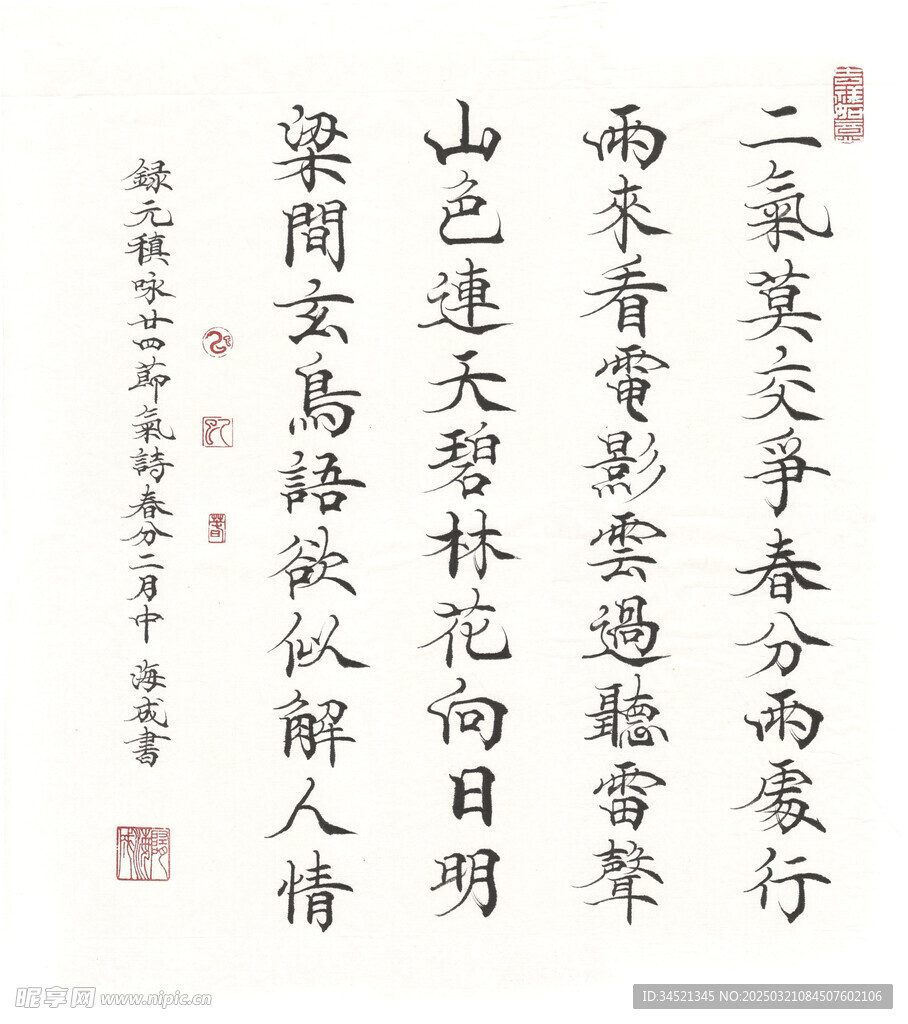 吉祥如意
二氣莫交爭春分雨處行
雨來看電影雲過聽雷聲
山色連天碧林花向日明
梁間玄鳥語欲似解人情
録元稹咏廿四節氣詩春分二月中 海成書
昵享网 www.nipic.cn
ID:34521345 NO:20250321084507602106